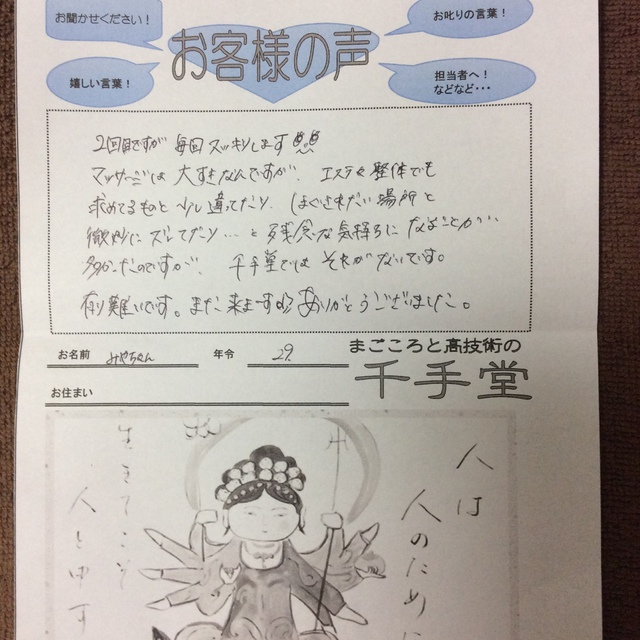 お聞かせください！
お叱りの言葉！
お客様の声
嬉しい言葉！
担当者へ！
などなど・・・
2回目ですが毎回スッキリします
マッサージは大すきなんですが、エステや整体でも
求めてるものと少し違ってたり、ほぐされたい場所と
微妙にズレてたり…と残念な気持ちになることが
多かったのですが、千手堂ではそれがないです。
有り難いです。また来ます!! ありがとうございました。
お名前 みやちゃん 年令 29
お住まい
まごころと高技術の
千手堂
人は
人のために
生きてこそ
人と申す